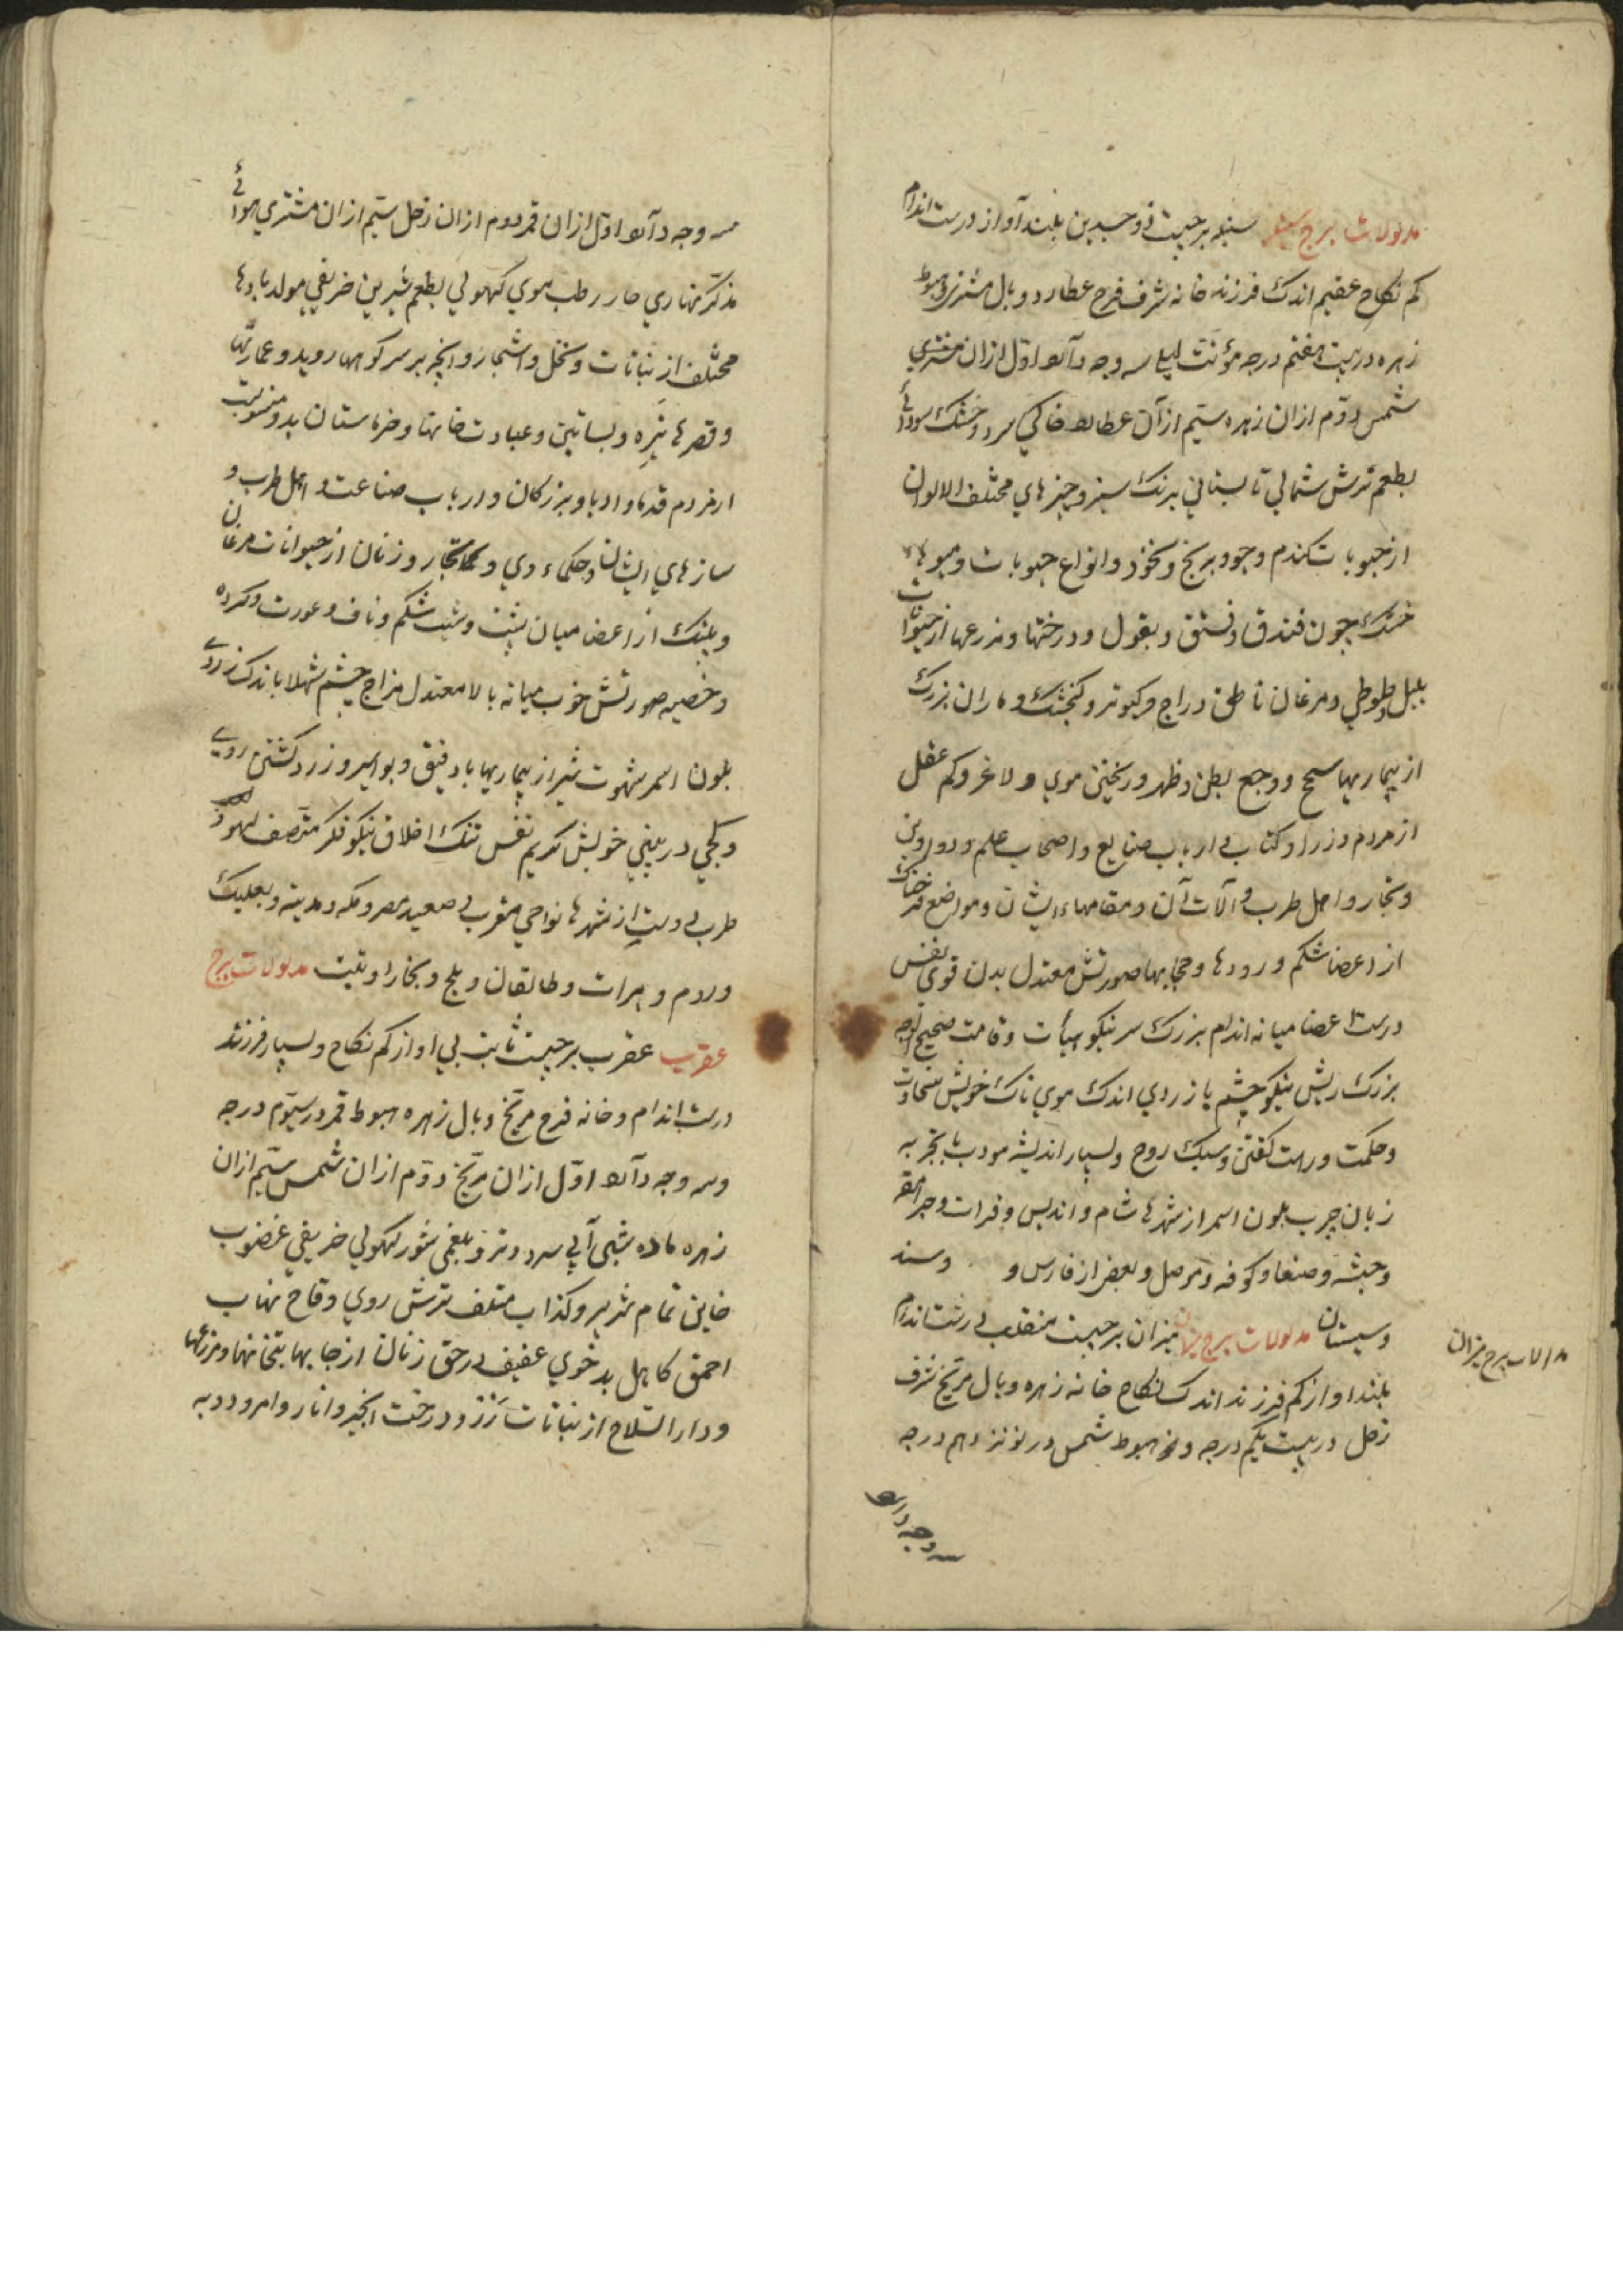 مدلولات برج سنبله سنبله برجیست ذو جسدین بلند آواز درست اندام
کم نکاح عقیم اندک فرزند خانه شرف فرح عطارد وبال مشتری هبوط
زهره در بیست هفتم درجه مؤنث لیلی سه وجه دارد اول ازان مشتری
شمس دوّم ازان زهره سیّم ازآن عطارد خاکی سرد و خشک سودائی
بطعم ترش شمالی تابستانی برنک سبز و چیزهای مختلف الالوان
از حبوبات کندم و جو و برنج و نخود و انواع حبوبات و میوهای
خشک چون فندق و فستق و بقول و درختها و مزرعها از حیوانات
بلبل و طوطی و مرغان ناطق دراج و کبوتر و کنجشک و ماران بزرک
از بیماریها سحج و وجع بطن و ظهر و ریختن موی و لاغر و کم عقل
از مردم وزرا و کتاب و ارباب صنایع و اصحاب علم و دواوین
و تجار و اهل طرب و آلات آن و مقامهاء ایشان و مواضع
از اعضا شکم و رودها و حجابها صورتش معتدل بدن قوی نفس
درست اعضا میانه اندام بزرک سر نیکو هیأت و قامت صحیح الوجه
بزرک ریش نیکو چشم با زردی اندک موی ناک خویش سخاوت
و حکمت و راست کفتن و سبک روح و بسیار اندیشه مودب با تجربه
زبان چرب بلون اسمر از شهرها شام و اندلس و فرات و جرامقه
و حبشه و صنعا و کوفه و موصل و بعضی از فارس و و سند
و سیستان مدلولات برج میزان میزان برجیست منقلب درست اندام
مدلولات برج میزان
بلند اواز کم فرزند اندک نکاح خانه زهره وبال مریخ شرف
زحل در بیست یکم درجه و هبوط شمس در نوزدهم درجه
سه وجه دارد
سه وجه دارد اول ازان قمر دوم ازان زحل سیّم ازان مشتری هوائی
مذکّر نهاری حار رطب دموی کهولی بطعم شیرین خریفی مولد بادها
مختلف از نباتات و نخل و اشجار و انچه بر سر کوهها روید و عمارتها
و قصرها نیزه و بساتین و عبادت خانها و خرماستان بدو منسوبست
از مردم قدما و ادبا و بزرکان و ارباب صناعت و اهل طرب و
سازهای ایشان و حکماء دین و تجار و زنان از حیوانات مرغان
و پلنک از اعضا میان پشت و شیب شکم و ناف و عورت و کرده
و خصیه صورتش خوب میانه بالا معتدل مزاج چشم شهلا با اندک زردی
بلون اسمر شهوت تیز از بیماریها باد فتق و بواسیر و زرد کشتن روی
و کجی در بینی خویش کریم نفس تنک اخلاق نیکو فکر متصف
طرب دوست از شهرها نواحی مغرب و صعید مصر و مکه و مدینه و بعلبک
و روم و هرات و طالقان و بلخ و بخارا و تبت مدلولات برج
عقرب عقرب برجیست ثابت بی اواز کم نکاح و بسیار فرزند
درست اندام و خانه فرح مریخ وبال زهره هبوط قمر در سیّوم درجه
و سه وجه دارد اوّل ازان مریخ دوّم ازان شمس سیّم ازان
زهره ماده شبی آبی سرد و تر و بلغمی شور کهولی خریفی غضوب
خاین تمام شریر و کذاب متلف ترش روی وقاح نهاب
احمق کاهل بدخوی عفیف در حق زنان از جایها بتخانها و مزرعها
و دار السلاح از نباتات رز و درخت انجیر و انار و امرود و به